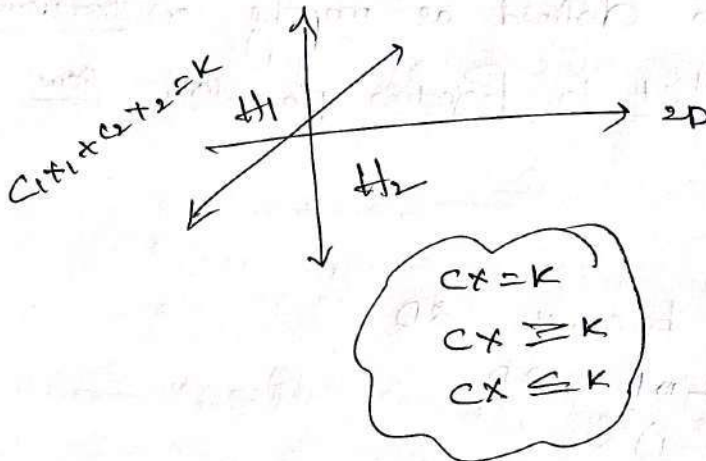 C1x1 + C2x2 = K
H1
2D
H2
CX = K
CX ≥ K
CX ≤ K